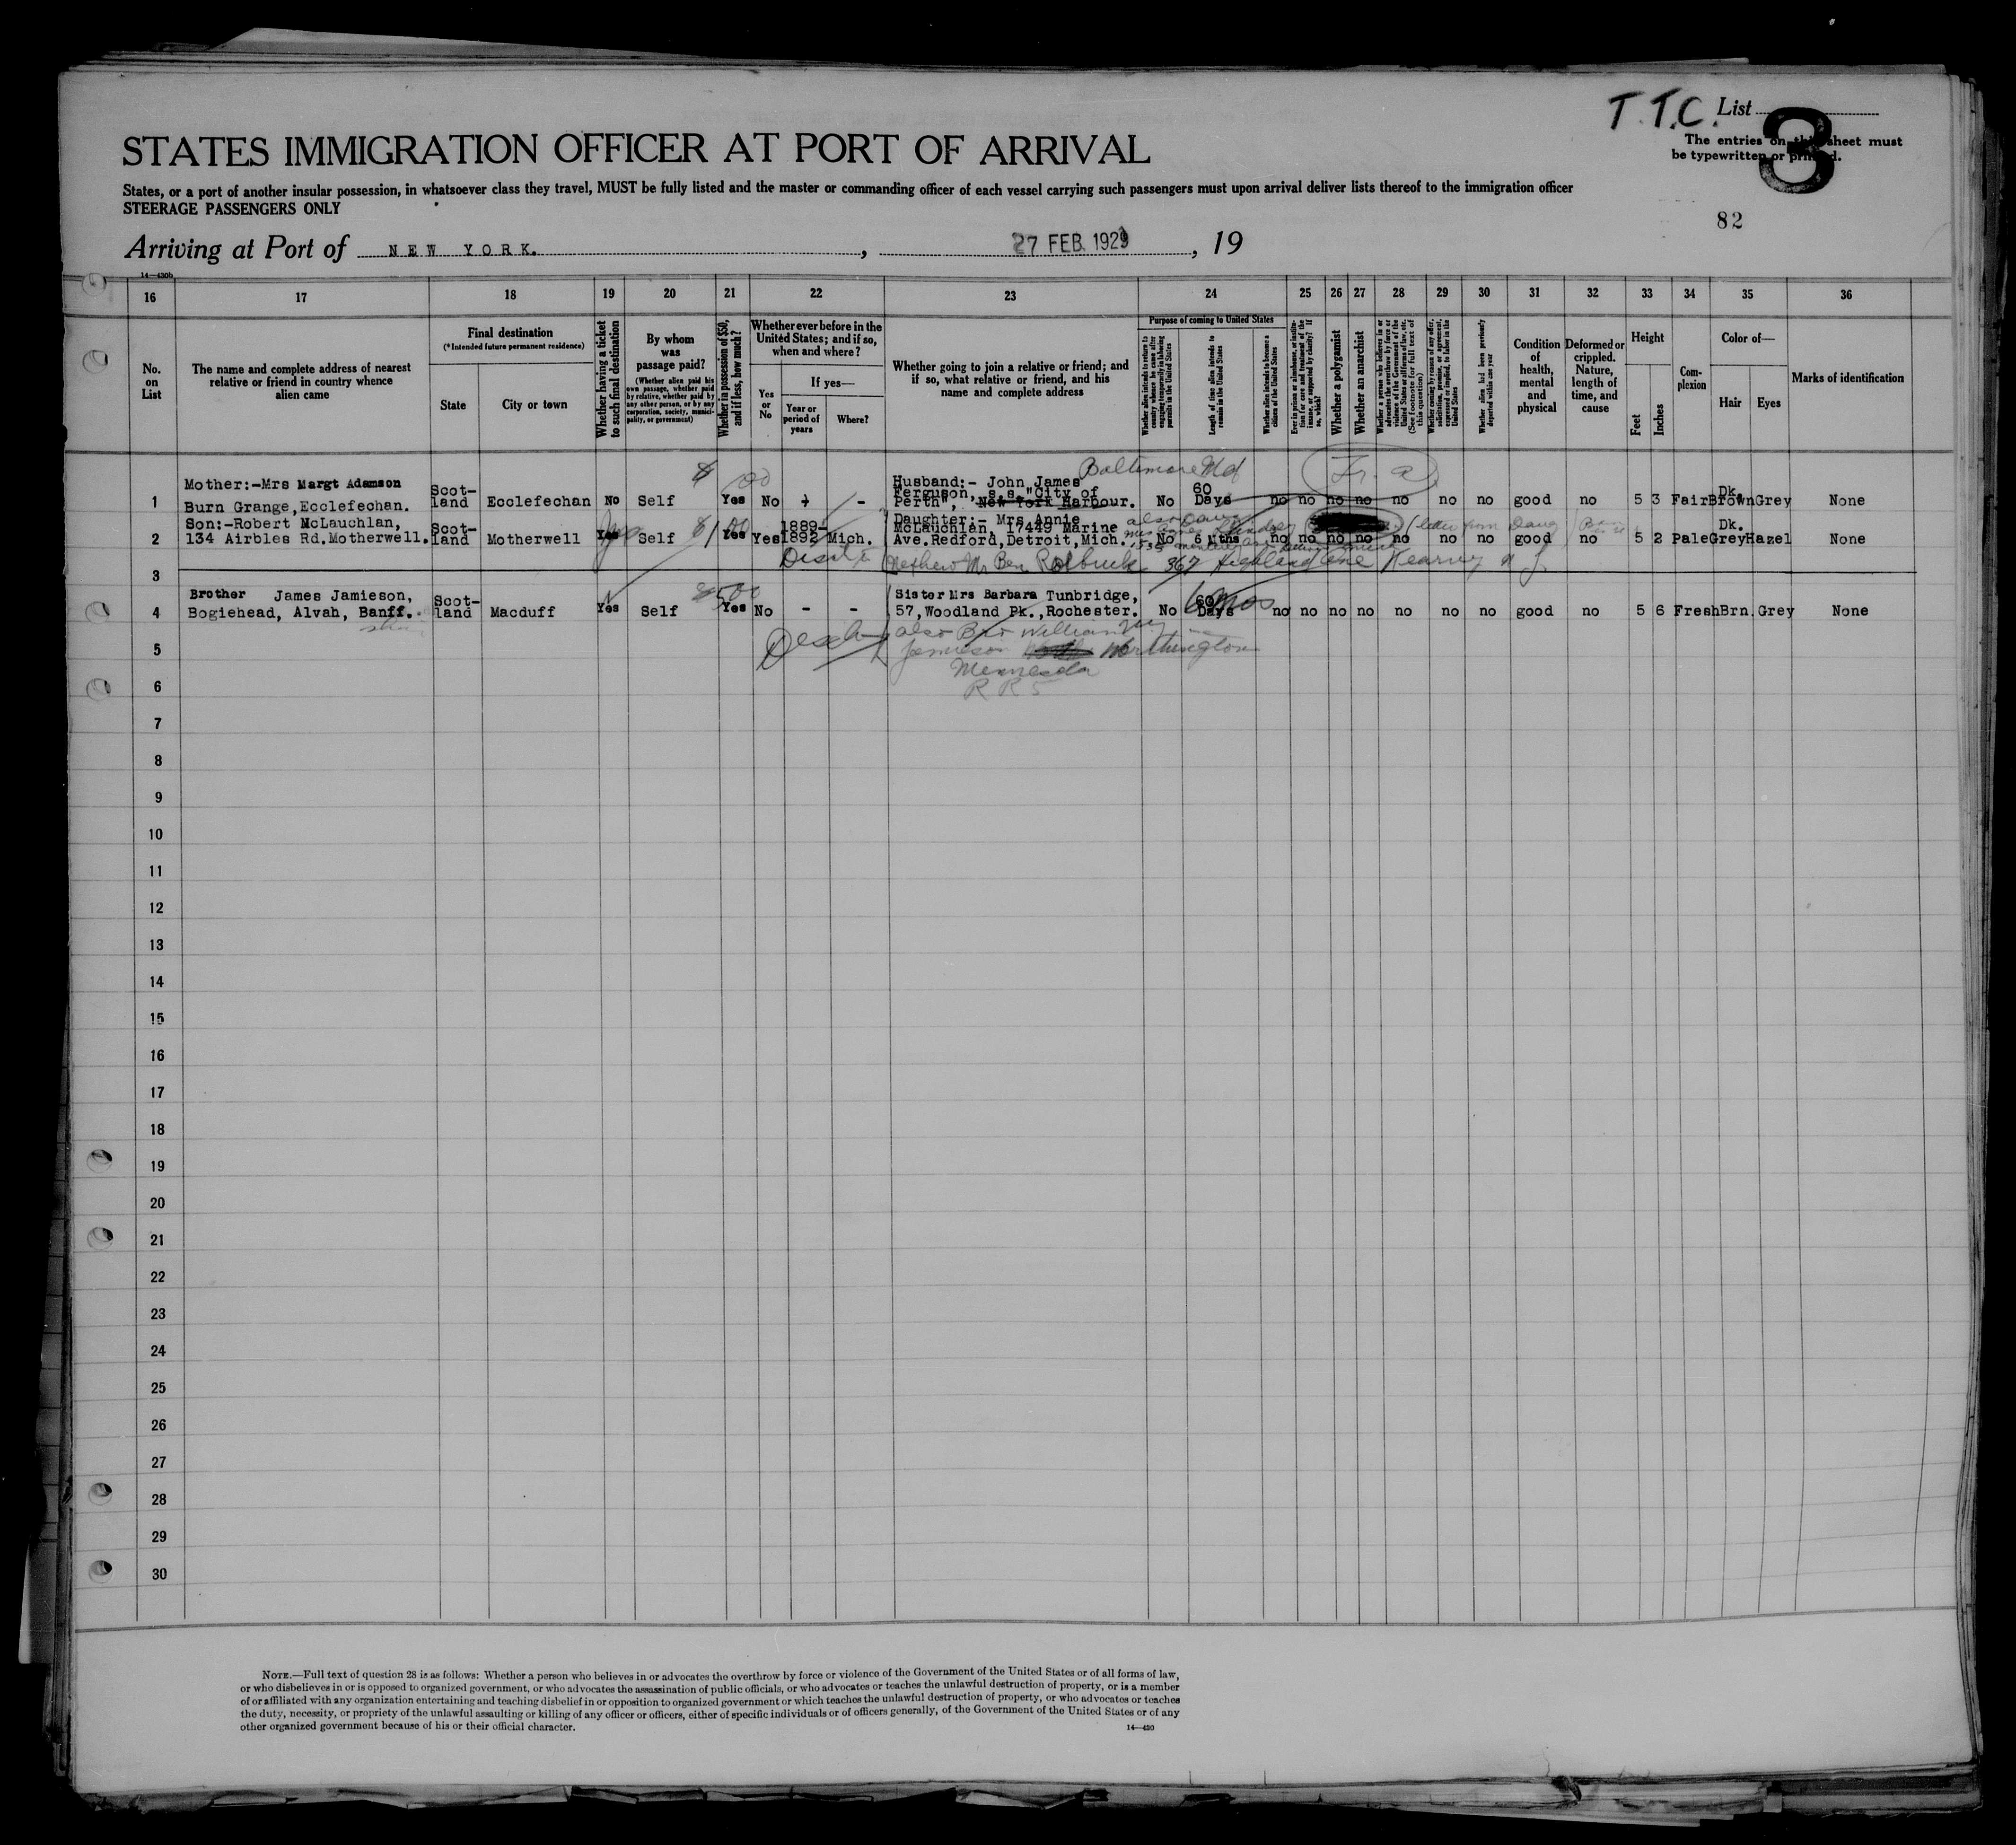 T.T.C. List
3
STATES IMMIGRATION OFFICER AT PORT OF ARRIVAL
The entries on this sheet must
be typewritten or printed.
States, or a port of another insular possession, in whatsoever class they travel, MUST be fully listed and the master or commanding officer of each vessel carrying such passengers must upon arrival deliver lists thereof to the immigration officer
STEERAGE PASSENGERS ONLY
82
Arriving at Port of NEW YORK. , 27 FEB. 1929 , 19
14—430b
16 17 18 19 20 21 22 23 24 25 26 27 28 29 30 31 32 33 34 35 36
No. on List
The name and complete address of nearest relative or friend in country whence alien came
Final destination
(*Intended future permanent residence)
State
City or town
Whether having a ticket to such final destination
By whom was passage paid?
(Whether alien paid his own passage, whether paid by relative, whether paid by any other person, or by any corporation, society, municipality, or government)
Whether in possession of $50, and if less, how much?
Whether ever before in the United States; and if so, when and where?
Yes or No
If yes—
Year or period of years
Where?
Whether going to join a relative or friend; and if so, what relative or friend, and his name and complete address
Purpose of coming to United States
Length of time alien intends to remain in the United States
Whether alien intends to become a citizen of the United States
Whether a polygamist
Whether an anarchist
Whether alien had been previously deported within one year
Condition of health, mental and physical
Deformed or crippled. Nature, length of time, and cause
Height
Feet
Inches
Complexion
Color of—
Hair
Eyes
Marks of identification
Baltimore Md
Mother:-Mrs Margt Adamson Husband:- John James
Scot- Ferguson, s.s."City of 60 Dk.
1 Burn Grange,Ecclefechan. land Ecclefechan No Self Yes No - Perth", New York Harbour. No Days no no no no no no no good no 5 3 Fair Brown Grey None
Son:-Robert McLauchlan, Scot- 1889- Daughter:- Mrs Annie Dk.
McLauchlan, 17449 Marine
2 134 Airbles Rd.Motherwell. land Motherwell Yes Self Yes Yes 1892 Mich. Ave.Redford,Detroit,Mich. No 6 Mths no no no no no no no good no 5 2 Pale Grey Hazel None
Nephew Mr Ben 367 Highland Ave Kearny N J
3
Brother James Jamieson, Scot- Sister Mrs Barbara Tunbridge, 60 6 mos
4 Bogiehead, Alvah, Banff. land Macduff Yes Self Yes No - - 57,Woodland Pk.,Rochester. No Days no no no no no no no good no 5 6 Fresh Brn. Grey None
also Bro William
5 Jamieson Worthington
Minnesota
6 R R 5
7
8
9
10
11
12
13
14
15
16
17
18
19
20
21
22
23
24
25
26
27
28
29
30
NOTE.—Full text of question 28 is as follows: Whether a person who believes in or advocates the overthrow by force or violence of the Government of the United States or of all forms of law,
or who disbelieves in or is opposed to organized government, or who advocates the assassination of public officials, or who advocates or teaches the unlawful destruction of property, or is a member
of or affiliated with any organization entertaining and teaching disbelief in or opposition to organized government or which teaches the unlawful destruction of property, or who advocates or teaches
the duty, necessity, or propriety of the unlawful assaulting or killing of any officer or officers, either of specific individuals or of officers generally, of the Government of the United States or of any
other organized government because of his or their official character.
14—430